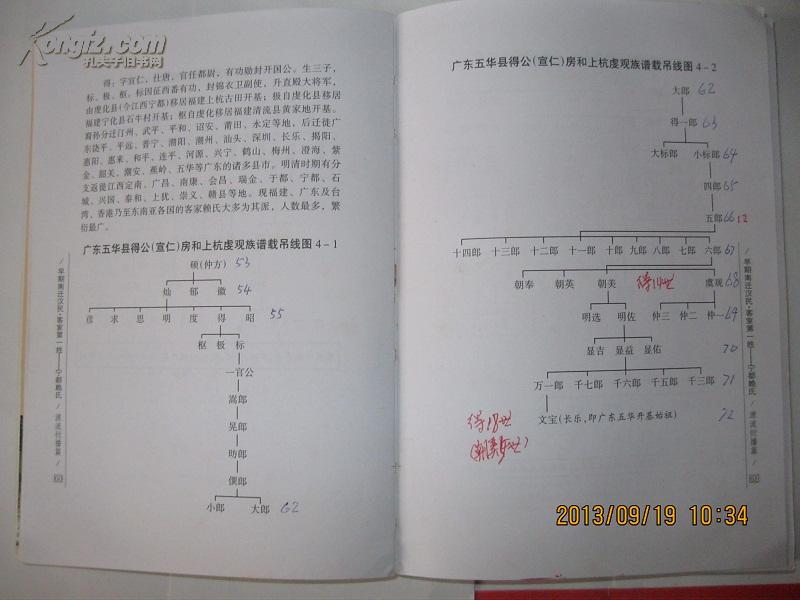 Kongfz.com
孔夫子旧书网
得:字宣仁,仕唐,官任都尉,有功勋封开国公。生三子,
标、极、枢。标因征西番有功,封锦衣卫副使,升直殿大将军,
由虔化县(今江西宁都)移居福建上杭古田开基;极自虔化县移居
福建宁化县石牛村开基;枢自虔化移居福建清流县黄家地开基。
裔孙分迁汀州、武平、平和、诏安、莆田、永定等地,后迁徙广
东饶平、平远、普宁、潮阳、潮州、汕头、深圳、长乐、揭阳、
惠阳、惠来、和平、连平、河源、兴宁、鹤山、梅州、澄海、紫
金、韶关、潮安、蕉岭、五华等广东的诸多县市。明清时期有分
支返徙江西定南、广昌、南康、会昌、瑞金、于都、宁都、石
城、兴国、泰和、上犹、崇义、赣县等地。现福建、广东及台
湾、香港乃至东南亚各国的客家赖氏大多为其派,人数最多,繁
衍最广。
广东五华县得公(宣仁)房和上杭虔观族谱载吊线图 4-1
硕(仲方) 53
灿 郁 徽 54
彦 求 思 明 度 得 昭 55
枢 极 标
一官公
嵩郎
晃郎
昉郎
僎郎
小郎 大郎 62
早期南迁汉民·客家第一姓——宁都赖氏
源流衍播篇
广东五华县得公(宣仁)房和上杭虔观族谱载吊线图 4-2
大郎 62
得一郎 63
大标郎 小标郎 64
四郎 65
五郎 66 12
十四郎 十三郎 十二郎 十一郎 十郎 九郎 八郎 七郎 六郎 67
朝奉 朝英 朝美 得14世 虔观 68
明选 明佐 仲三 仲二 仲一 69
显吉 显益 显佑 70
万一郎 千七郎 千六郎 千五郎 千三郎 71
文宝(长乐,即广东五华开基始祖) 72
得18世
早期南迁汉民·客家第一姓——宁都赖氏
源流衍播篇
2013/09/19 10:34